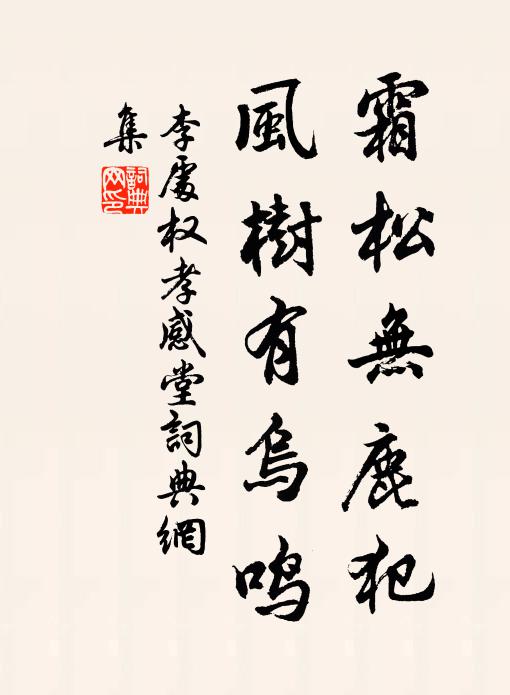 霜松無鹿犯
風樹有烏鳴
李處权孝感堂詞典網
集
詞典
网印